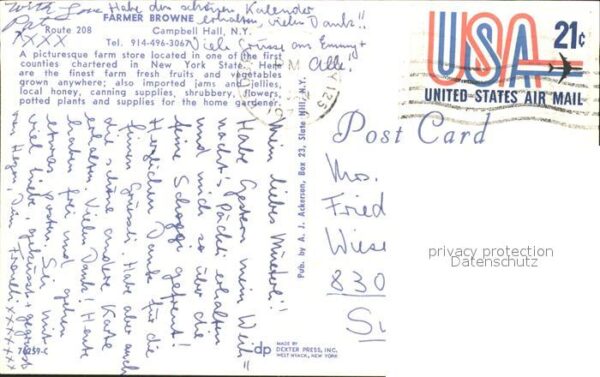 With Love
Pete
XXXX
Habe den schönen Kalender
erhalten, vielen Dank!!
Viele Grüsse an Emmy +
Alle,
FARMER BROWNE
Route 208
Campbell Hall, N.Y.
Tel. 914-496-3067
A picturesque farm store located in one of the first
counties chartered in New York State. Here
are the finest farm fresh fruits and vegetables
grown anywhere; also imported jams and jellies,
local honey, canning supplies, shrubbery, flowers,
potted plants and supplies for the home gardener.
Mein liebes Müeterli!!
Habe Gestern mein Weih-
nachts-Päckli erhalten
und mich so über die
feine Schoggi gefreut!
Herzlichen Dank für die
feinen Grüessli. Habe aber auch
die schöne andere Karte
erhalten. Vielen Dank! Heute
haben frei und gehen
etwas posten. Sei mit
viel Liebe geküsst + gegrüsst
von Herzen, Dis
XXXXXX
76259-C
Pub. by A. J. Ackerson, Box 23, Slate Hill, N.Y.
dp
MADE BY
DEXTER PRESS, INC.
WEST NYACK, NEW YORK
USA 21¢
UNITED STATES AIR MAIL
Post Card
Mrs.
Fried
Wiese
830
S
privacy protection
Datenschutz